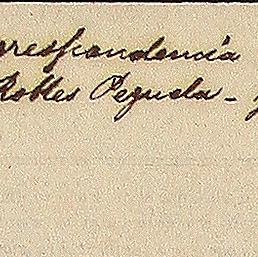 orrespondencia
Robles Pezuela -